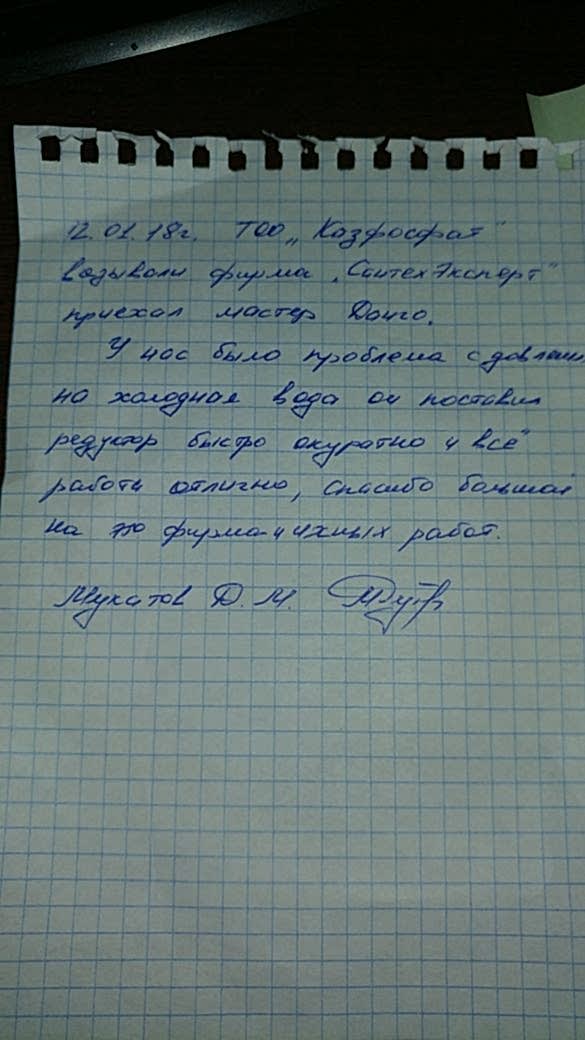 12.01.18г. ТОО „Казфосфат"
вазывали фирма „СантехЭксперт"
приехал мастер Данго.
У нас было проблема с
на холодная вода он поставил
редуктор быстро окуратно и всё
работи отлично, спасибо большой
на это фирма и ихных работ.
Мукатов Д. М.